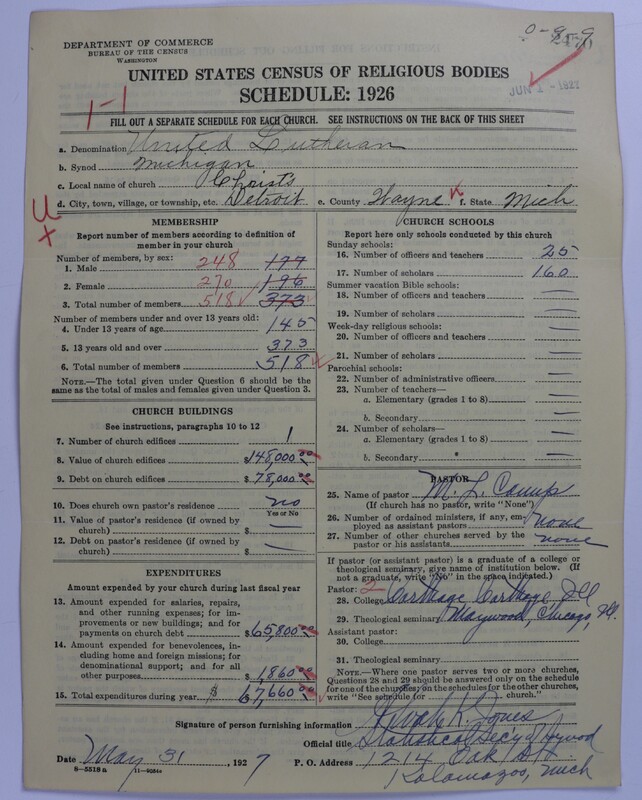 0-9-9
2470
DEPARTMENT OF COMMERCE
BUREAU OF THE CENSUS
WASHINGTON
UNITED STATES CENSUS OF RELIGIOUS BODIES
SCHEDULE: 1926
JUN 1 - 1927
1-1
FILL OUT A SEPARATE SCHEDULE FOR EACH CHURCH. SEE INSTRUCTIONS ON THE BACK OF THIS SHEET
a. Denomination United Lutheran
b. Synod Michigan
c. Local name of church Christ's
d. City, town, village, or township, etc. Detroit e. County Wayne K f. State Mich
U
x
MEMBERSHIP
Report number of members according to definition of member in your church
Number of members, by sex:
1. Male 248 177
2. Female 270 196
3. Total number of members 518 373
Number of members under and over 13 years old:
4. Under 13 years of age 145
5. 13 years old and over 373
6. Total number of members 518
NOTE.—The total given under Question 6 should be the same as the total of males and females given under Question 3.
CHURCH BUILDINGS
See instructions, paragraphs 10 to 12
7. Number of church edifices 1
8. Value of church edifices $148,000.00
9. Debt on church edifices $78,000.00
10. Does church own pastor's residence? no
Yes or No
11. Value of pastor's residence (if owned by church) $ —
12. Debt on pastor's residence (if owned by church) $ —
EXPENDITURES
Amount expended by your church during last fiscal year
13. Amount expended for salaries, repairs, and other running expenses; for improvements or new buildings; and for payments on church debt $65,800.00
14. Amount expended for benevolences, including home and foreign missions; for denominational support; and for all other purposes $1,860.00
15. Total expenditures during year $ 67,660.00
CHURCH SCHOOLS
Report here only schools conducted by this church
Sunday schools:
16. Number of officers and teachers 25
17. Number of scholars 160
Summer vacation Bible schools:
18. Number of officers and teachers —
19. Number of scholars —
Week-day religious schools:
20. Number of officers and teachers —
21. Number of scholars —
Parochial schools:
22. Number of administrative officers —
23. Number of teachers—
a. Elementary (grades 1 to 8) —
b. Secondary —
24. Number of scholars—
a. Elementary (grades 1 to 8) —
b. Secondary —
PASTOR
25. Name of pastor M. L. Camp
(If church has no pastor, write "None")
26. Number of ordained ministers, if any, employed as assistant pastors none
27. Number of other churches served by the pastor or his assistants none
If pastor (or assistant pastor) is a graduate of a college or theological seminary, give name of institution below. (If not a graduate, write "No" in the space indicated.)
Pastor: 2
28. College Carthage Carthage, Ill
29. Theological seminary Maywood, Chicago Ill.
Assistant pastor:
30. College
31. Theological seminary
NOTE.—Where one pastor serves two or more churches, Questions 28 and 29 should be answered only on the schedule for one of the churches; on the schedules for the other churches, write "See schedule for church."
Signature of person furnishing information K. Jones
Official title Statistical Secy
Date May 31, 1927 P. O. Address 1214 Oak St
Kalamazoo, Mich
8-5518a